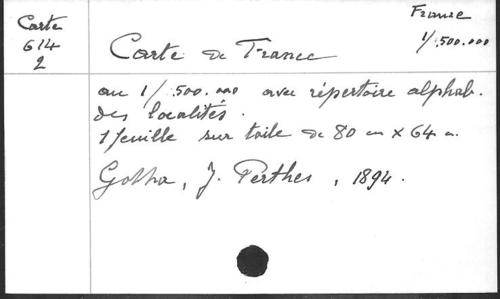 Carte
614
2
France
1/500.000
Carte de France
au 1/500.000 avec répertoire alphab.
des localités.
1 feuille sur toile de 80 cm x 64 c.
Gotha, J. Perthes, 1894.